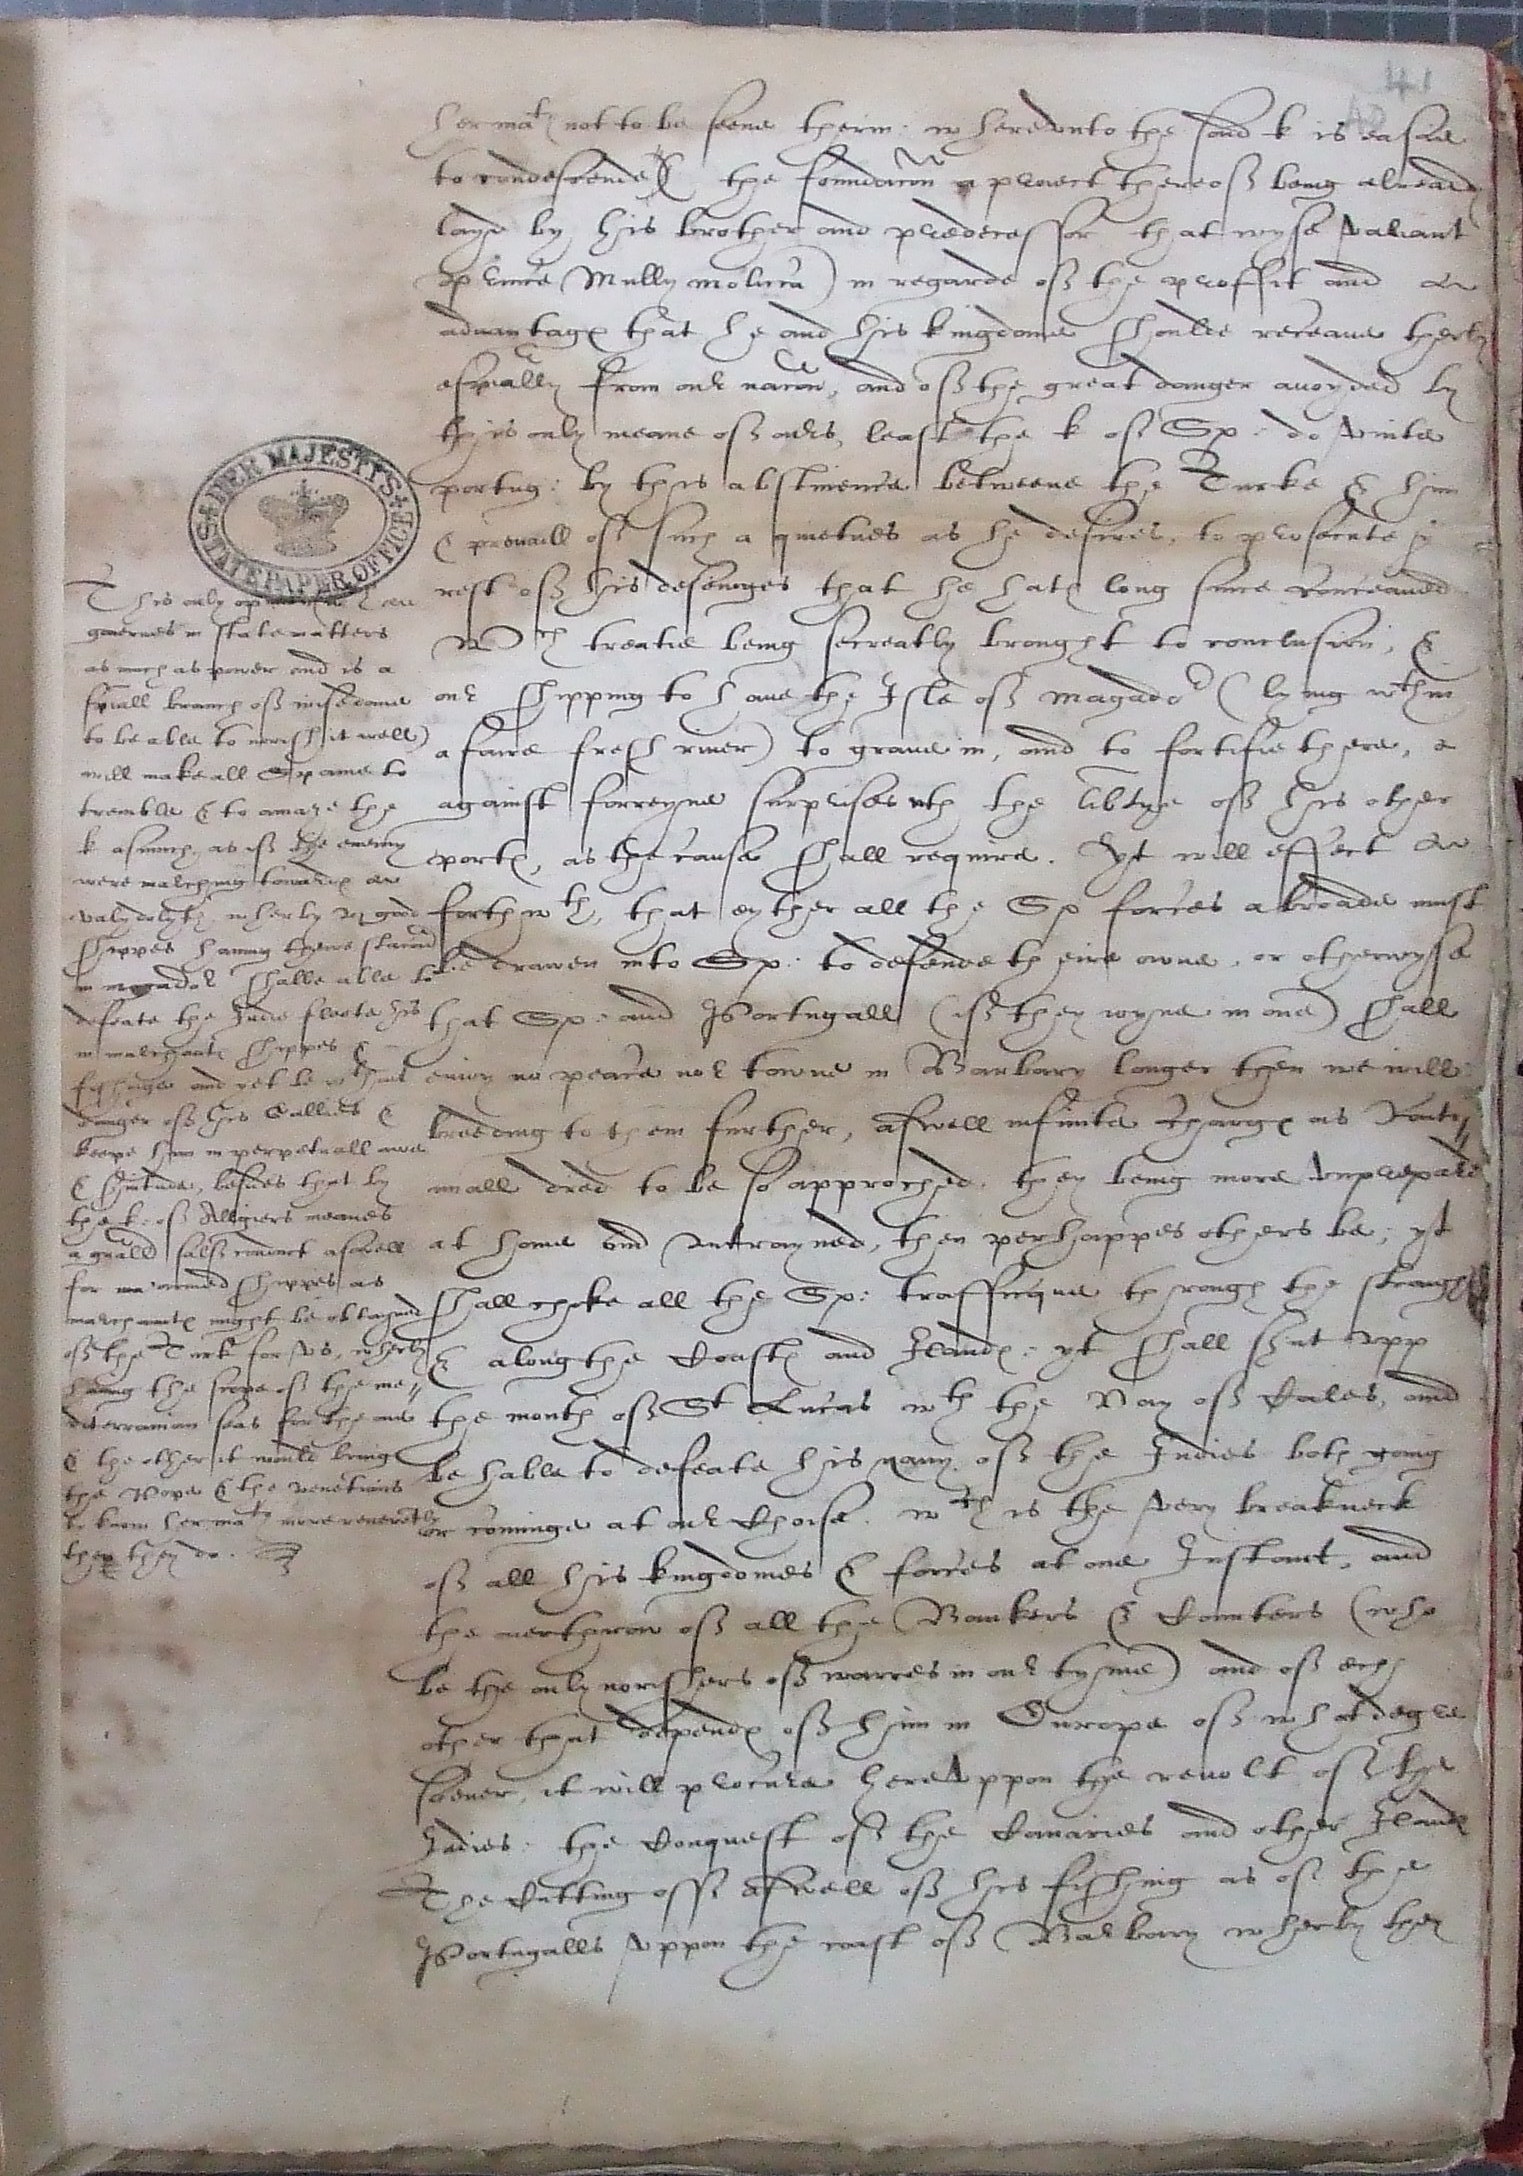 41
her matie not to be seene therin: whereunto the said k is easie
to condescende & the foundacon & proiect thereof being alread
layd by his brother and predecessor that wyse valiant
prince Mully moluco) in regarde of the proffit and
aduantage that he and his kingdome should receaue therby
especially from our nacon, and of the great danger auoyded by
this only meane of ours, least the k of Sp: do vnite
portug: by this abstinence betweene the Turke & him
& prevaill of such a quietnes as he desires, to prosecute ye
rest of his deseinges that he hath long since conceaued
Wch treatie being secreatly brought to conclusion, &
our shipping to haue the Isle of magador (lying wthin
a faire fresh river) to graue in, and to fortifie there,
against forreyne surprises wth the libtye of his other
portes, as the cause shall require. Yt will effect
forthwth, that eyther all the Sp forces abroade must
be drawen into Sp: to defende theire owne, or otherwyse
that Sp: and Portugall (if they ioyne in one) shall
enioy no peace nor towne in Barbary longer then we will
breeding to them further, aswell infinite charge as conti„
nuall dred to be so approched, they being more vnprepard
at home and vntrayned, then perhappes others be; yt
shall choke all the Sp: trafficque through the straight
& along the Coastes and Ilandes: yt shall shut vpp
the mouth of St Lucas wth the Bay of Cales, and
be hable to defeate his navy of the Indies both going
or cominge at our choise. wch is the very breakneck
of all his kingdomes & forces at one Instant, and
the overthrow of all the Bankers & Counters (who
be the only norishers of warres in our tyme) and of ech
other that dependes of him in Europe of what degre
soever, it will procure hereuppon the revolt of the
Indies: the Conquest of the Canaries and other Ilandes
The Cutting off aswell of his fishing as of the
Portugalls vppon the coast of Barbary wherby they
HER MAJESTY'S
STATE PAPER OFFICE
This only
governes in state matters
as much as power and is a
speciall branch of wisedome
to be able to norish it well)
will make all Spaine to
tremble & to amaze the
k asmuch, as if the enemy
were marching towardes
valydolyth, wherby good
shippes having theire stacon
in magador shalbe able to
defeate the Indie fleete his
marchantes shippes &
fishinge and yet be wthout
danger of his Gallies &
keepe him in perpetuall awe
& , besides that by
the k: of Algiers meanes
a gnall salf conduct aswell
for armed shippes as
marchantes might be obtayned
of the Turk for vs, wherby
having the scope of the me„
diterranian seas for the one
& the other it would bring
the Pope & the venetians
to know her maty more reverently
then they do.